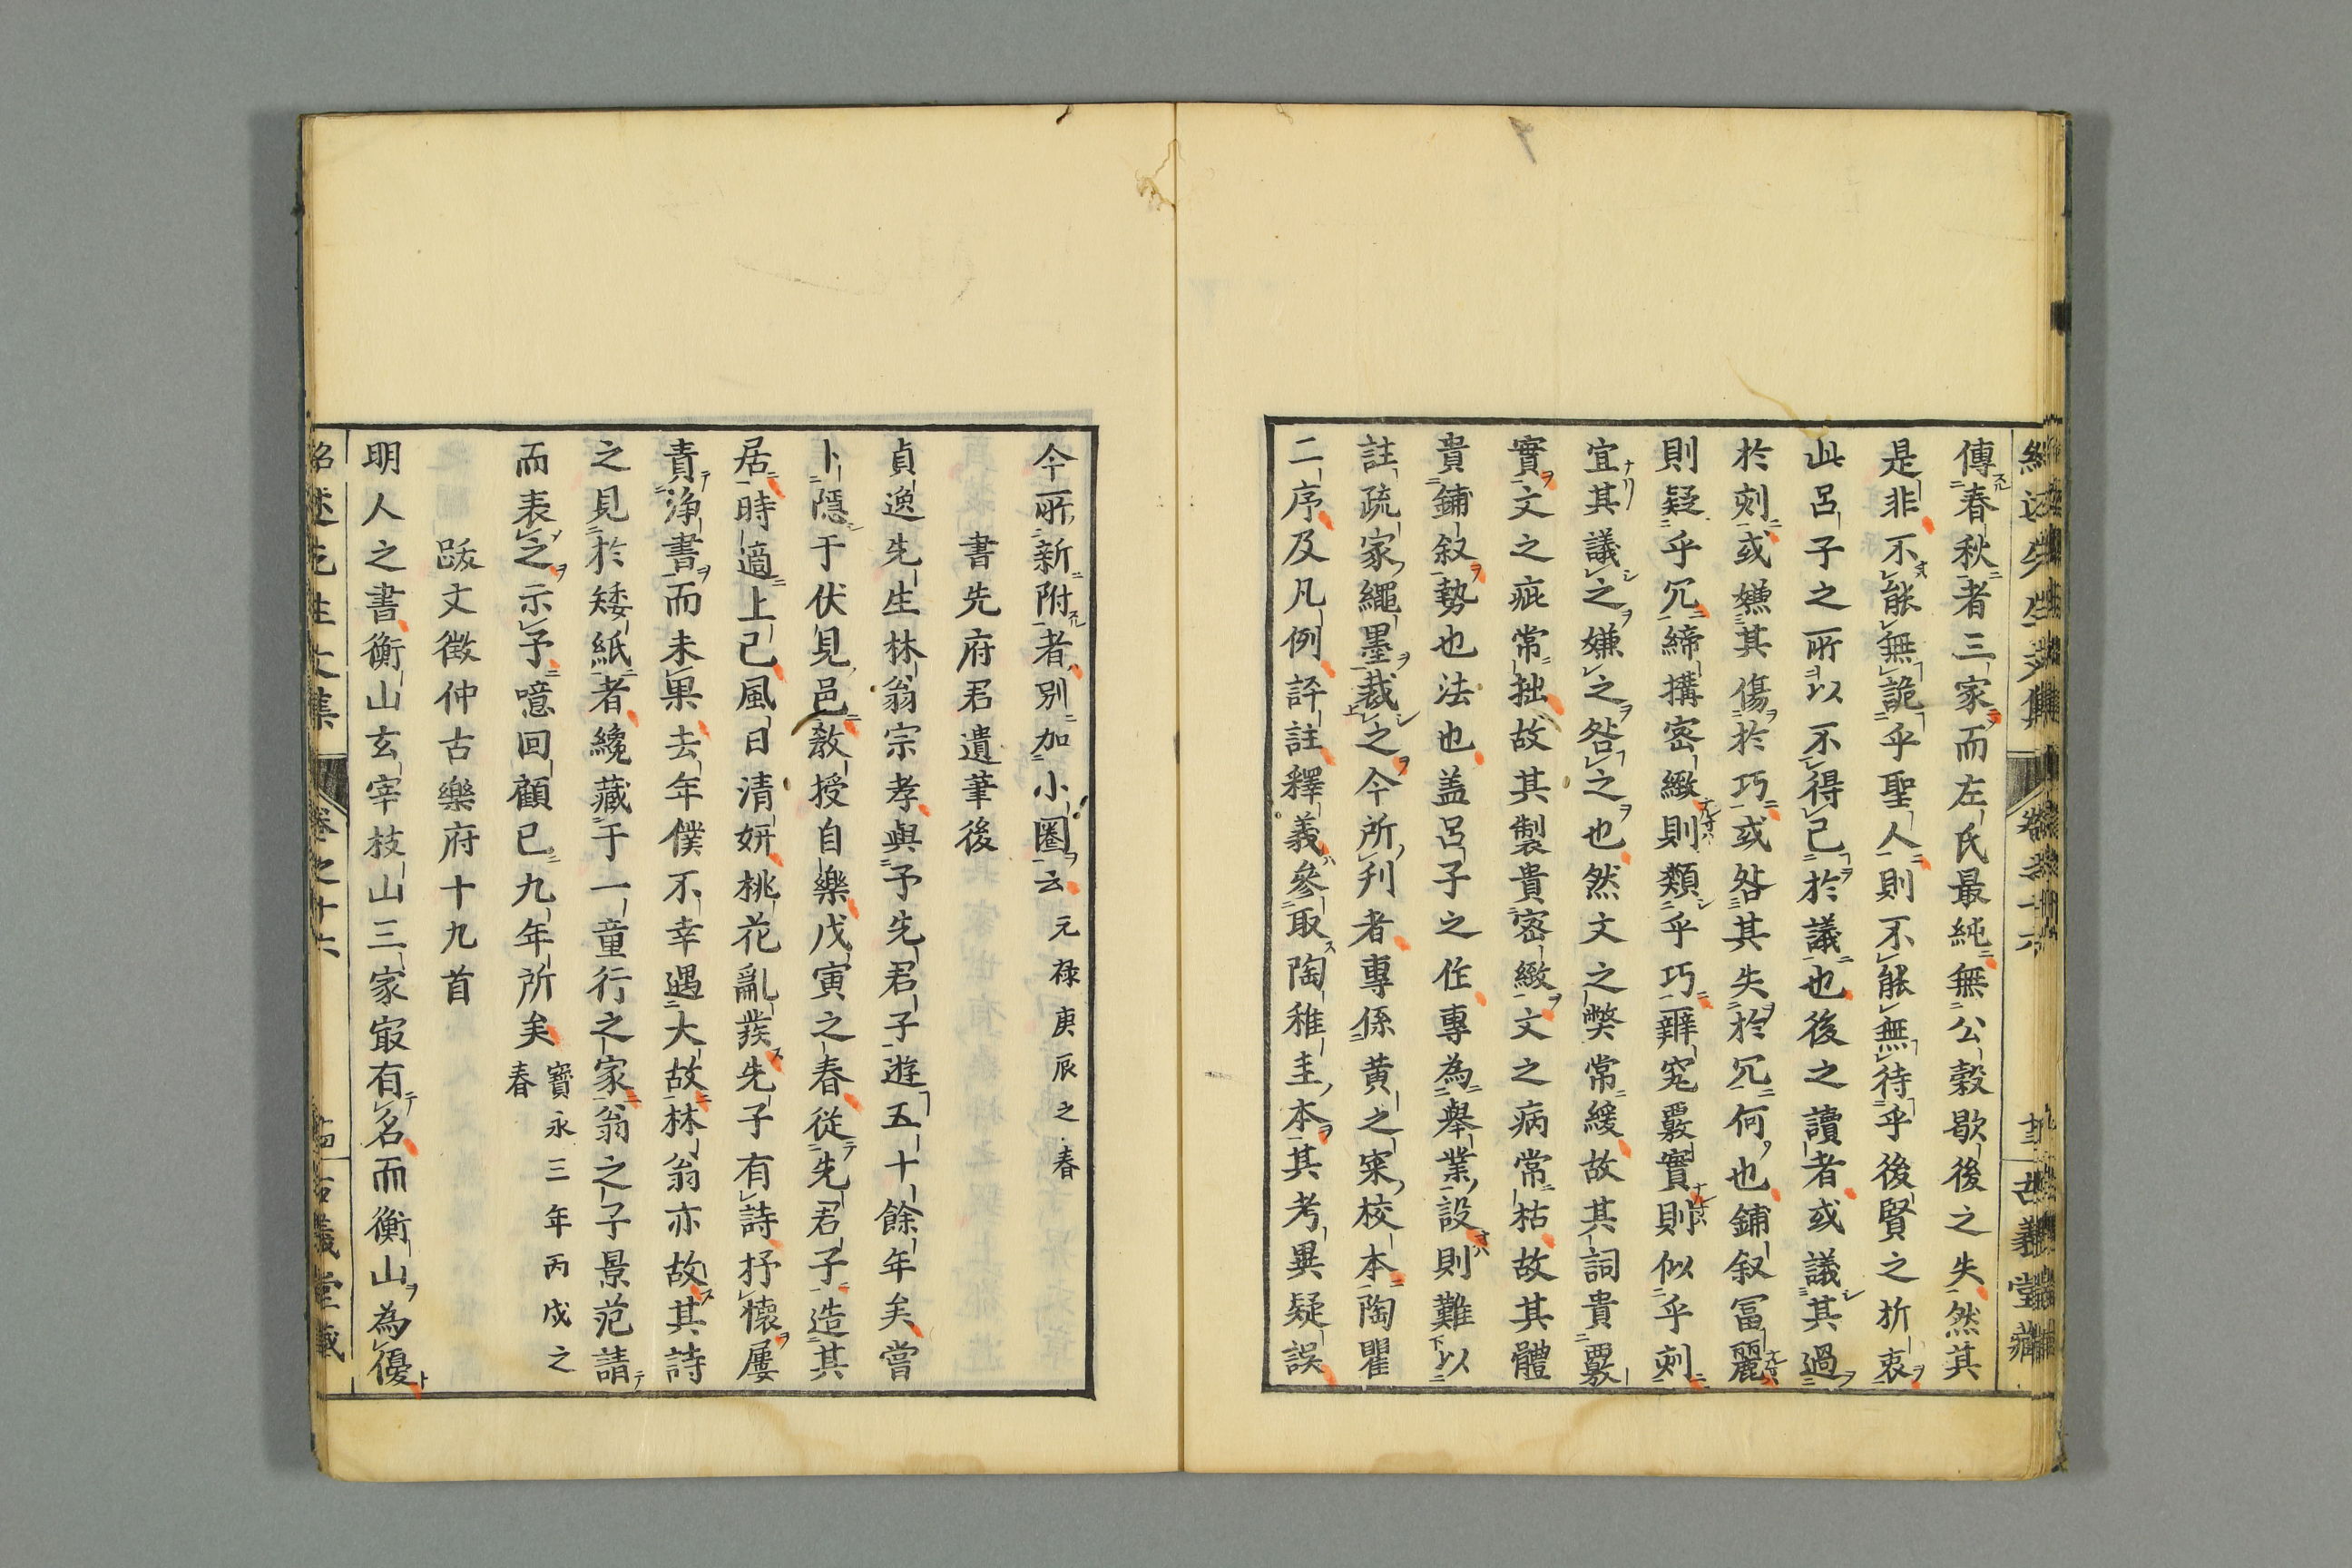 傳春秋者三家而左氏最純無公穀歇後之失然其
是非不能無詭乎聖人則不能無待乎後賢之折衷
此呂子之所以不得已於議也後之讀者或議其過
於刻或嫌其傷於巧或咎其失於冗何也鋪叙冨麗
則疑乎冗締搆密緻則類乎巧辨究覈實則似乎刻
宜其議之嫌之咎之也然文之獘常緩故其詞貴覈
實文之疵常拙故其製貴密緻文之病常枯故其體
貴鋪叙勢也法也盖呂子之作專為舉業設則難以
註疏家繩墨裁之今所刋者專係黄之寀校本陶瞿
二序及凡例評註釋義參取陶稚圭本其考異疑誤
今所新附者別加小圏云 元禄庚辰之春
書先府君遺筆後
貞逸先生林翁宗孝與予先君子遊五十餘年矣嘗
卜隱于伏見邑教授自樂戊寅之春從先君子造其
居時適上巳風日清妍桃花亂發先子有詩抒懷屢
責淨書而未果去年僕不幸遇大故林翁亦故其詩
之見於矮紙者纔藏于一童行之家翁之子景范請
而表之示予噫回顧已九年所矣 寶永三年丙戌之春
跋文徵仲古樂府十九首
明人之書衡山玄宰枝山三家㝡有名而衡山為優
紹述先生文集 卷之十六 古義堂藏